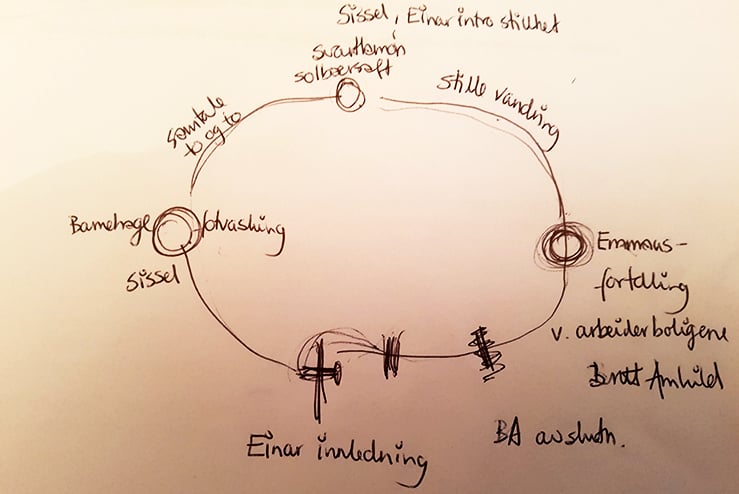 Sissel, Einar intro stillhet
svartlamon
solbærsaft
stille vandring
samtale
to og to
Barnehage
fotvasking
Sissel
Emmaus-
fortelling
v. arbeiderboligene
Einar innledning
BA avslutn.